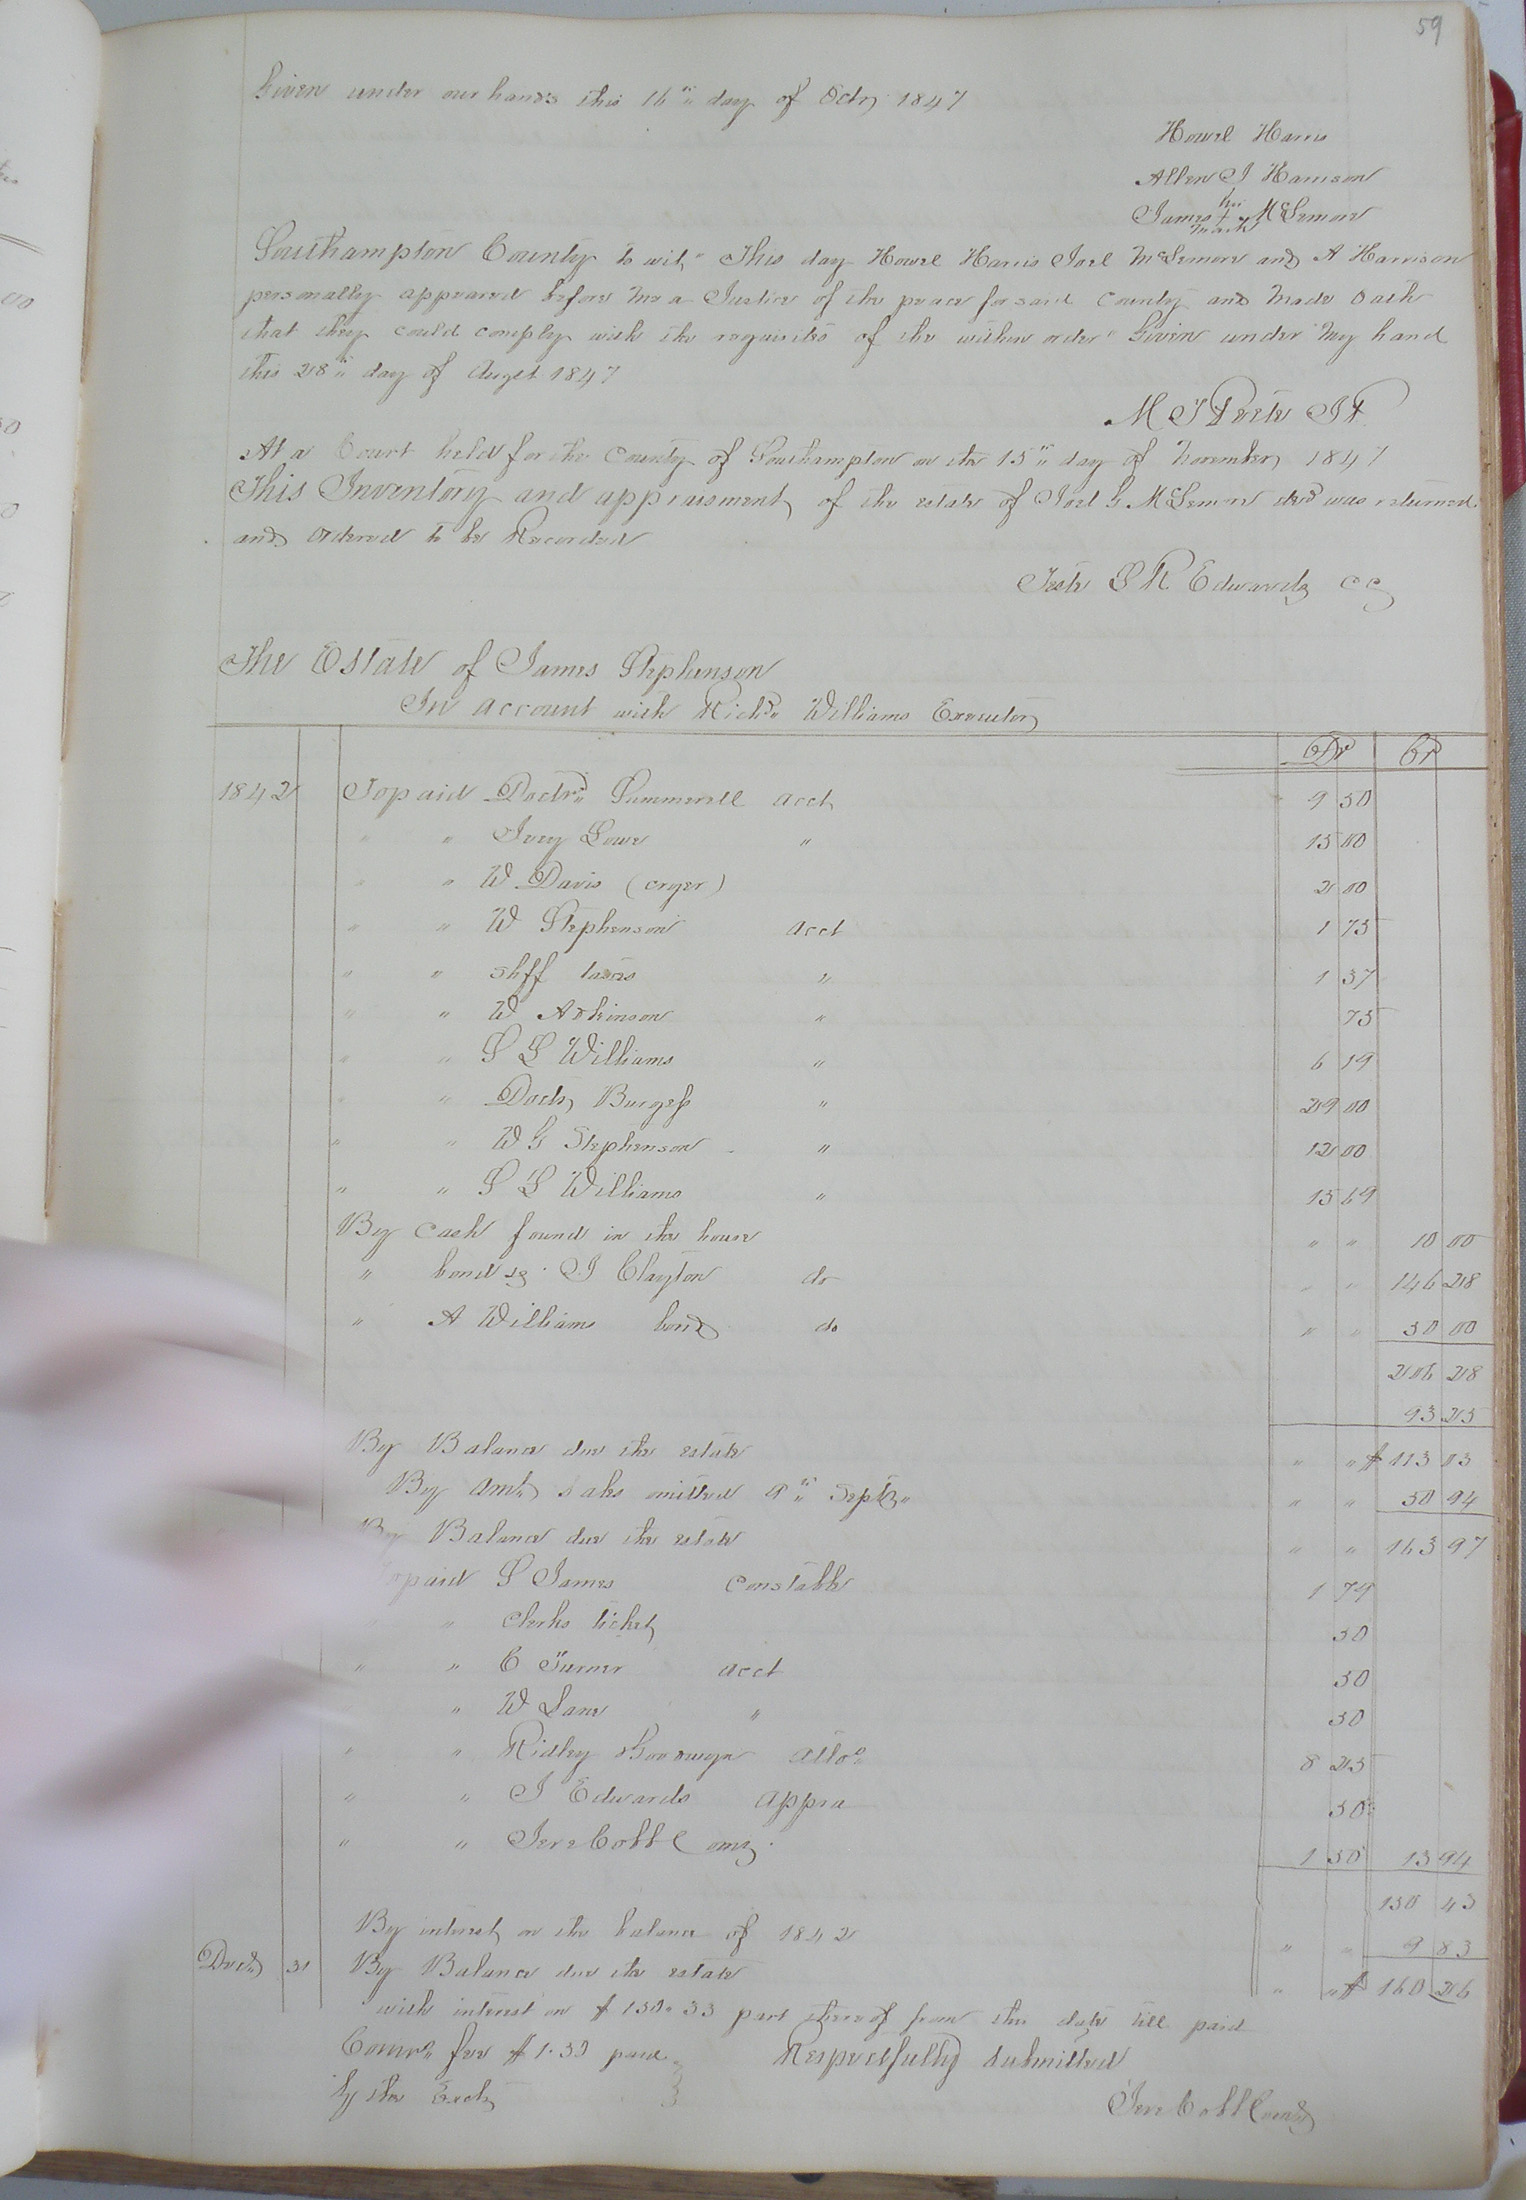 59
Given under our hands this 16" day of Octr 1847
Howel Harris
Allen J Harrison
his
James + McLemore
mark
Southampton County to wit, This day Howel Harris Joel McLemore and A Harrison
personally appeared before me a Justice of the peace for said County and made oath
that they could comply with the requisites of the within order Given under my hand
this 28" day of Augst 1847
M J P J P
At a Court held for the County of Southampton on the 15" day of November 1847
This Inventory and appraisment of the estate of Joel G McLemore decd was returned
and ordered to be Recorded
Teste L R Edwards CC
The Estate of James Stephenson
In account with Richd Williams Executor
Dr Cr
1842 To paid Doctr Summerell acct 9 50
" " Ivey Lowe " 15 00
" " W Davis (cryer) 2 00
" " W Stephenson acct 1 75
" " shff taxes " 1 37
" " W Atkinson " 75
" " S L Williams " 6 19
" " Doctr Burgess " 29 00
" " W G Stephenson " 12 00
" " S L Williams " 15 69
By Cash found in the house " " 10 00
" bond J Clayton do " " 146 28
" A Williams bond do " " 50 00
206 28
93 25
By Balance due the estate " " $ 113 03
By amt sales omitted Septr " " 50 94
By Balance due the estate " " 163 97
To paid S James Constable 1 79
" Clerks ticket 50
" " C Turner acct 50
" W Lane " 50
" " Ridley Goodwyn atto 8 25
" " J Edwards appra 50
" " Jere Cobb Comr 1 50 13 94
150 43
By interest on the balance of 1842 " " 9 83
Decr 31 By Balance due the estate " " $ 160 26
with interest on $150.33 part thereof from this date till paid
Comrs fee $1.50 paid Respectfully submitted
by the Exctr
Jere Cobb Comr